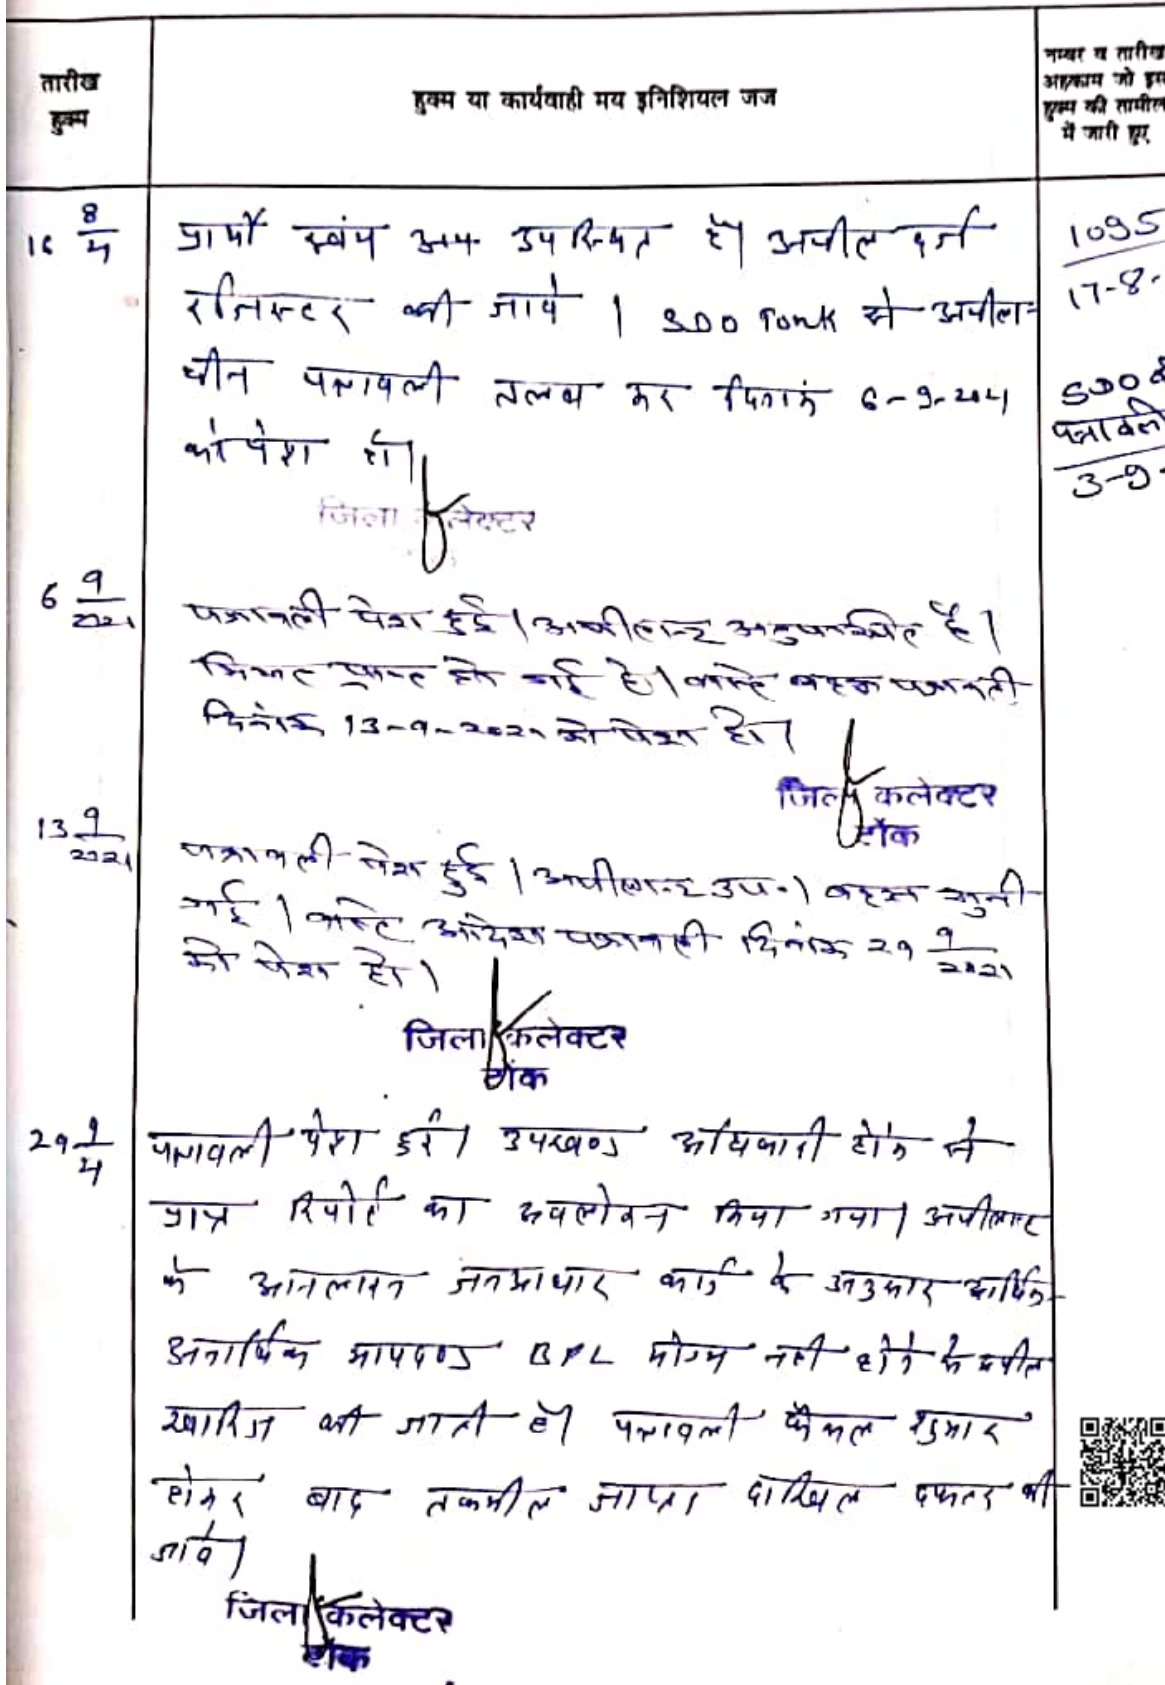 तारीख
हुक्म
हुक्म या कार्यवाही मय इनिशियल जज
नम्बर व तारीख
अहकाम जो इस
हुक्म की तामील
में जारी हुए
16 8/21
प्रार्थी स्वंय उप उपस्थित है। अपील दर्ज
रजिस्टर की जावे । SDO Tonk से अपीला-
धीन पत्रावली तलब कर दिनांक 6-9-2021
को पेश हो।
जिला कलेक्टर
1095
17-8-
SDO से
पत्रावली
3-9-
6 9/2021
पत्रावली पेश हुई । अपीलान्ट अनुपस्थित है ।
मिसल प्राप्त हो गई है। वास्ते बहस पत्रावली
दिनांक 13-9-2021 को पेश हो।
जिला कलेक्टर
टोंक
13 9/2021
पत्रावली पेश हुई । अपीलान्ट उप०। बहस सुनी
गई । वास्ते आदेश पत्रावली दिनांक 29 9/2021
को पेश हो।
जिला कलेक्टर
टोंक
29 9/21
पत्रावली पेश हुई। उपखण्ड अधिकारी टोंक से
प्राप्त रिपोर्ट का अवलोकन किया गया। अपीलान्ट
के जनआधार कार्ड के अनुसार आर्थिक
मापदण्ड BPL योग्य नही होने से अपील
खारिज की जाती है। पत्रावली फैसल शुमार
होकर बाद तकमील जाप्ता दाखिल दफ्तर की
जावे।
जिला कलेक्टर
टोंक